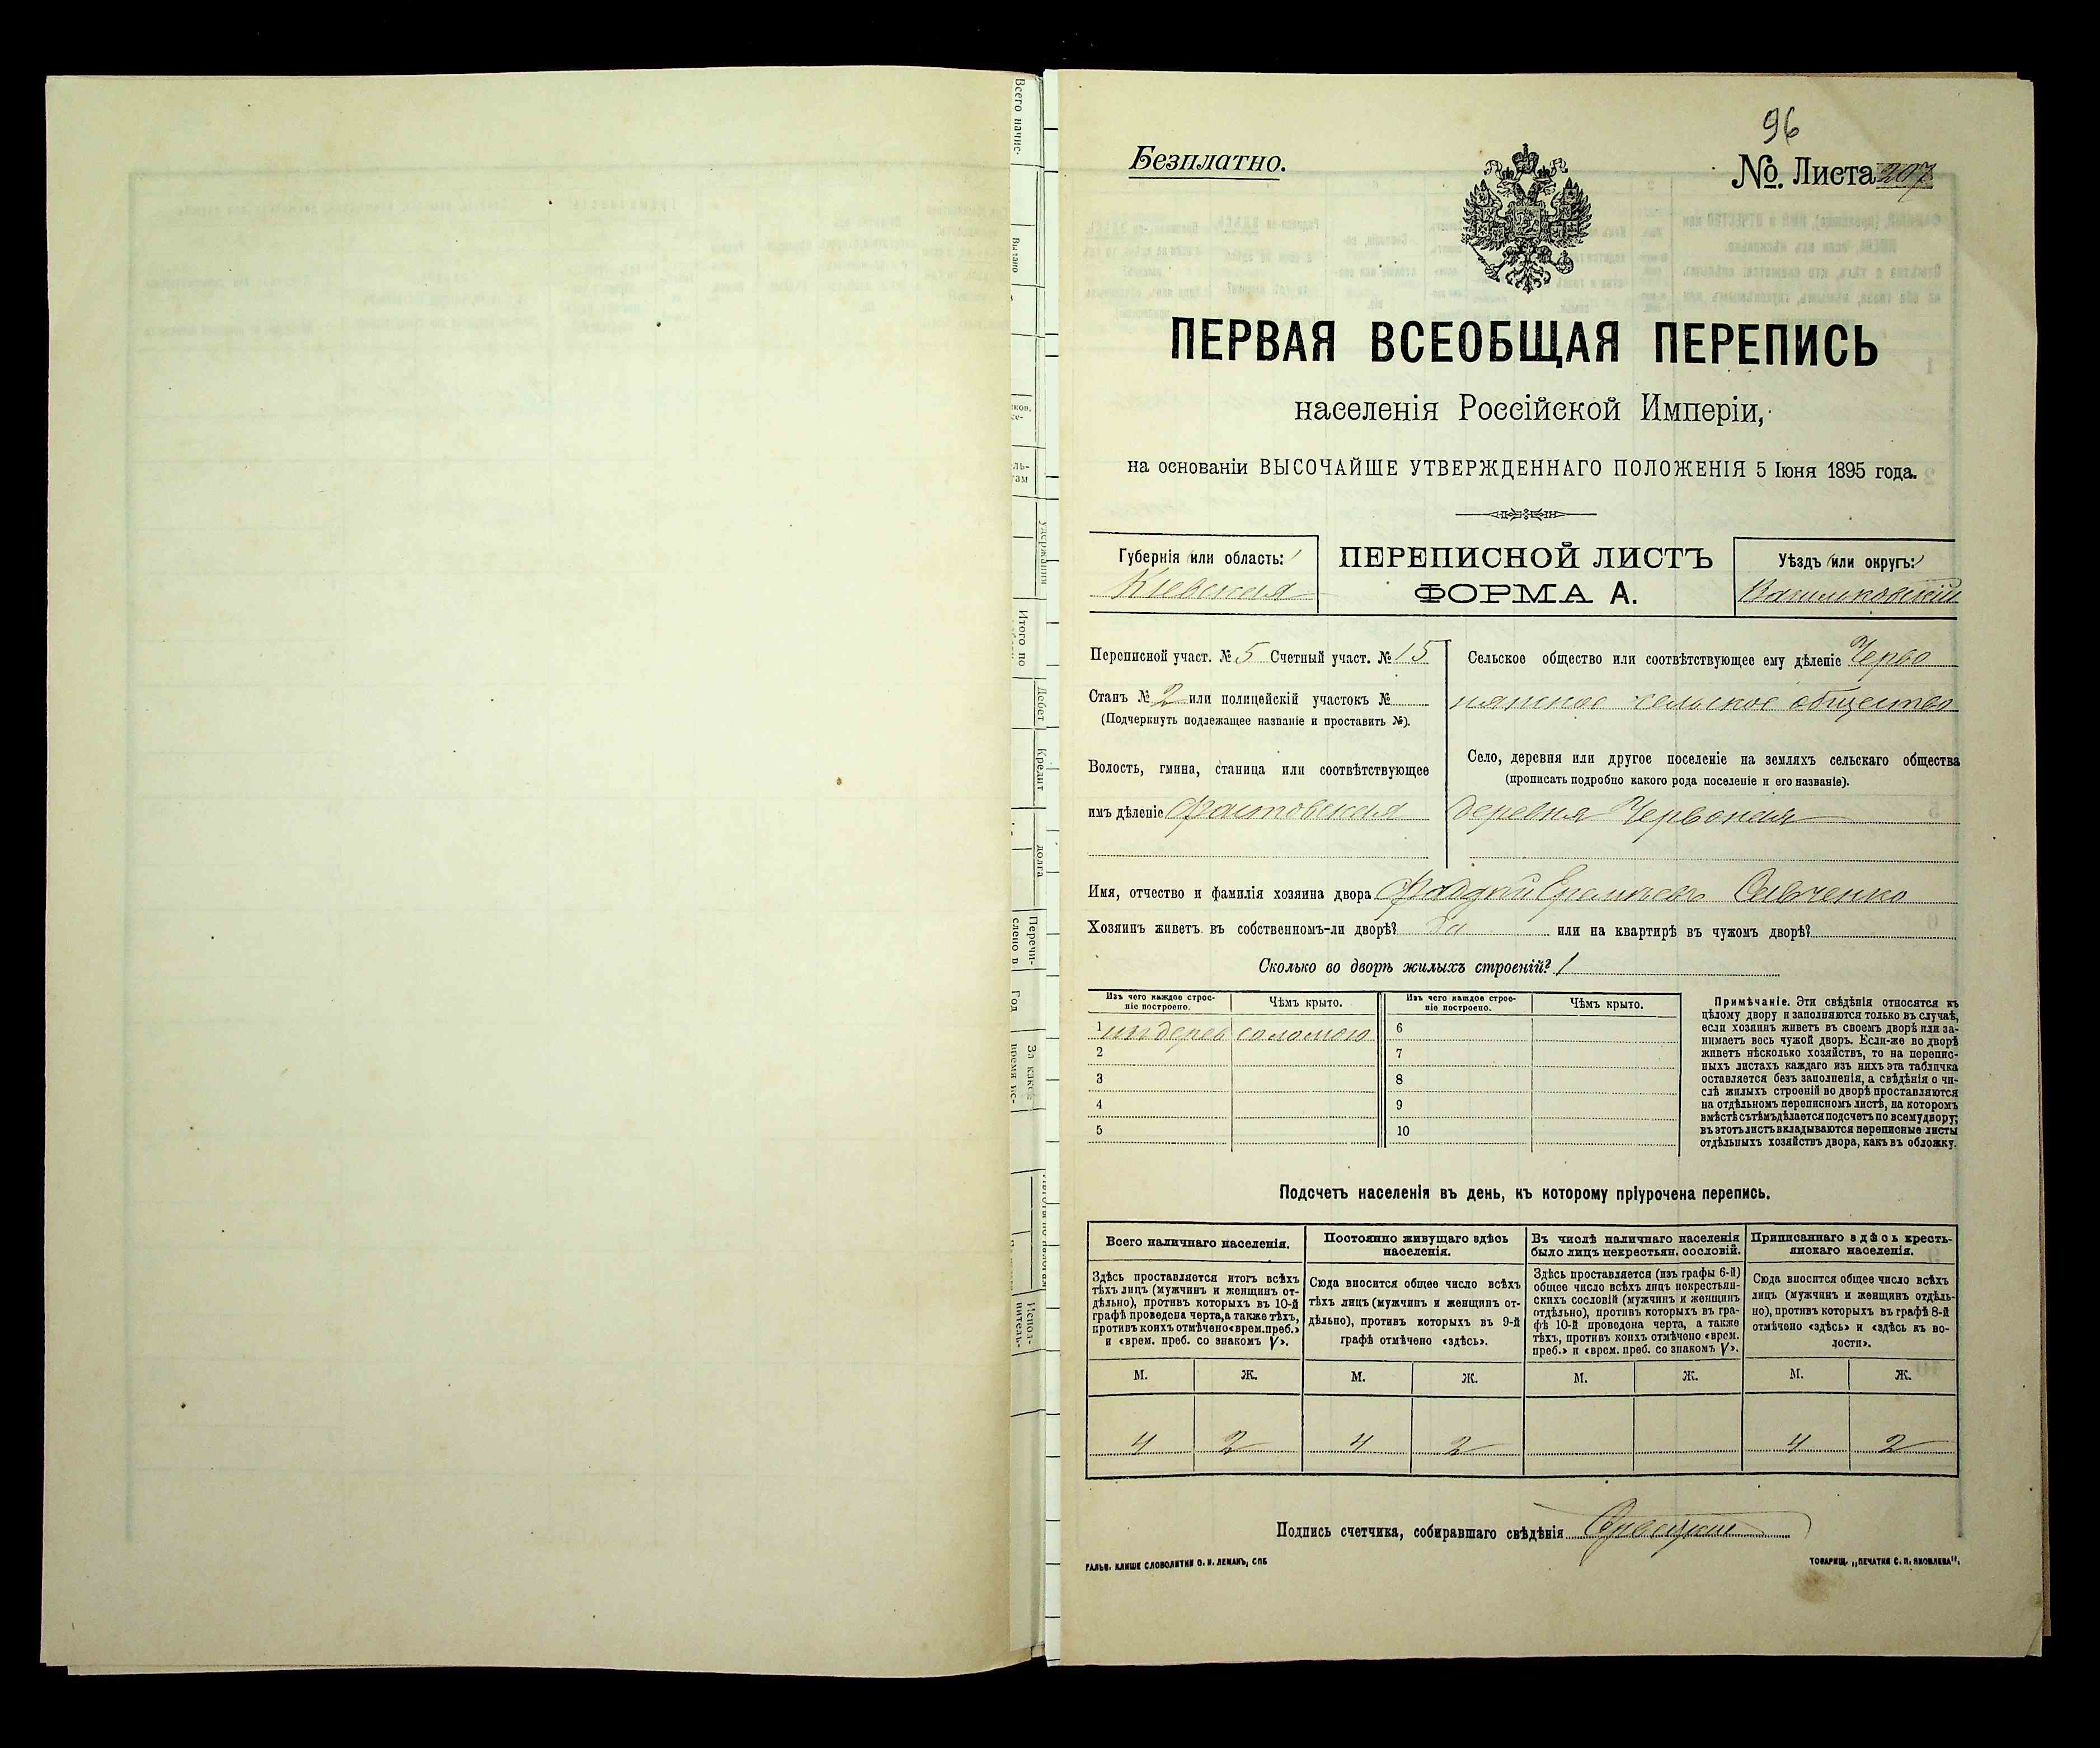 96
Безплатно.
№. Листа 207
ПЕРВАЯ ВСЕОБЩАЯ ПЕРЕПИСЬ
населенія Россійской Имперіи,
на основаніи ВЫСОЧАЙШЕ УТВЕРЖДЕННАГО ПОЛОЖЕНІЯ 5 Іюня 1895 года.
Губернія или область:
Кіевская
ПЕРЕПИСНОЙ ЛИСТЪ
ФОРМА А.
Уѣздъ или округъ:
Васильковскій
Переписной участ. № 5 Счетный участ. № 15
Станъ № 2 или полицейскій участокъ №
(Подчеркнуть подлежащее названіе и проставить №).
Волость, гмина, станица или соотвѣтствующее
имъ дѣленіе Фастовская
Сельское общество или соотвѣтствующее ему дѣленіе Черво
нянское сельское общество
Село, деревня или другое поселеніе на земляхъ сельскаго общества
(прописать подробно какого рода поселеніе и его названіе).
деревня Червоная
Имя, отчество и фамилія хозяина двора Савченко
Хозяинъ живетъ въ собственномъ-ли дворѣ? да или на квартирѣ въ чужомъ дворѣ?
Сколько во дворѣ жилыхъ строеній? 1
Изъ чего каждое строе-
ніе построено.
Чѣмъ крыто.
Изъ чего каждое строе-
ніе построено.
Чѣмъ крыто.
1 изъ дерев соломою
2
3
4
5
6
7
8
9
10
Примѣчаніе. Эти свѣдѣнія относятся къ
цѣлому двору и заполняются только въ случаѣ,
если хозяинъ живетъ въ своемъ дворѣ или за-
нимаетъ весь чужой дворъ. Если-же во дворѣ
живетъ нѣсколько хозяйствъ, то на перепис-
ныхъ листахъ каждаго изъ нихъ эта табличка
оставляется безъ заполненія, а свѣдѣнія о чи-
слѣ жилыхъ строеній во дворѣ проставляются
на отдѣльномъ переписномъ листѣ, на которомъ
вмѣстѣ съ тѣмъ дѣлается подсчетъ по всему двору;
въ этотъ листъ вкладываются переписные листы
отдѣльныхъ хозяйствъ двора, какъ въ обложку.
Подсчетъ населенія въ день, къ которому пріурочена перепись.
Всего наличнаго населенія.
Здѣсь проставляется итогъ всѣхъ
тѣхъ лицъ (мужчинъ и женщинъ от-
дѣльно), противъ которыхъ въ 10-й
графѣ проведена черта, а также тѣхъ,
противъ коихъ отмѣчено «врем. преб.»
и «врем. преб. со знакомъ V».
Постоянно живущаго здѣсь
населенія.
Сюда вносится общее число всѣхъ
тѣхъ лицъ (мужчинъ и женщинъ от-
дѣльно), противъ которыхъ въ 9-й
графѣ отмѣчено «здѣсь».
Въ числѣ наличнаго населенія
было лицъ некрестьян. сословій.
Здѣсь проставляется (изъ графы 6-й)
общее число всѣхъ лицъ некрестьян-
скихъ сословій (мужчинъ и женщинъ
отдѣльно), противъ которыхъ въ гра-
фѣ 10-й проведена черта, а также
тѣхъ, противъ коихъ отмѣчено «врем.
преб.» и «врем. преб. со знакомъ V».
Приписаннаго здѣсь кресть-
янскаго населенія.
Сюда вносится общее число всѣхъ
лицъ (мужчинъ и женщинъ отдѣль-
но), противъ которыхъ въ графѣ 8-й
отмѣчено «здѣсь» и «здѣсь къ во-
лости».
М. Ж. М. Ж. М. Ж. М. Ж.
4 2 4 2 4 2
Подпись счетчика, собиравшаго свѣдѣнія
ГАЛЬВ. КЛИШЕ СЛОВОЛИТНИ О. И. ЛЕМАНЪ, СПБ
ТОВАРИЩ. „ПЕЧАТНЯ С. П. ЯКОВЛЕВА".